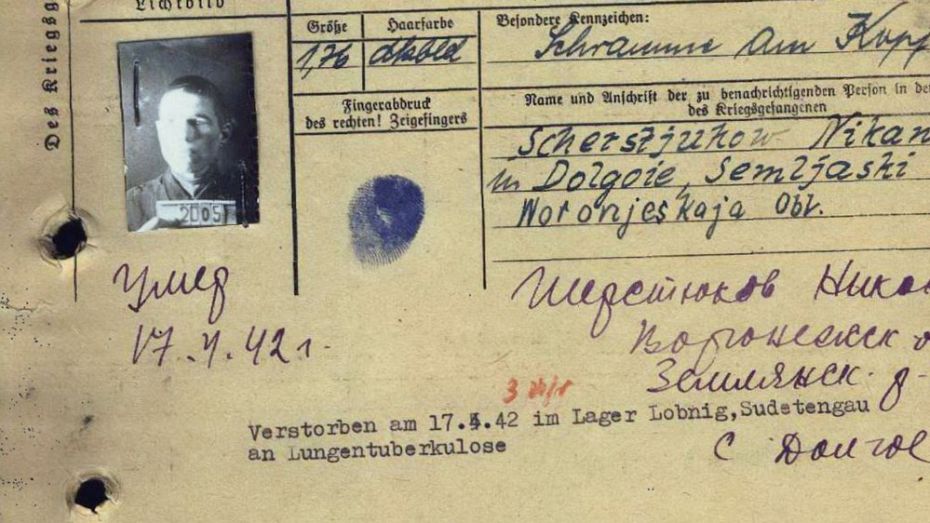 Des Kriegsg
Lichtbild
Größe
Haarfarbe
1,76
dkbld
Besondere Kennzeichen:
Schramme am Kopf
Fingerabdruck
des rechten! Zeigefingers
Name und Anschrift der zu benachrichtigenden Person in de
des Kriegsgefangenen
Scherstjukow Nikan
in Dolgoie, Semljaski
Woronjeskaja Obl.
2005
Умер
17.4.42 г.
Шерстюков Никон
Воронежск о
Землянск. р-
С Долгое
Verstorben am 17.4.42 im Lager Lobnig, Sudetengau
an Lungentuberkulose